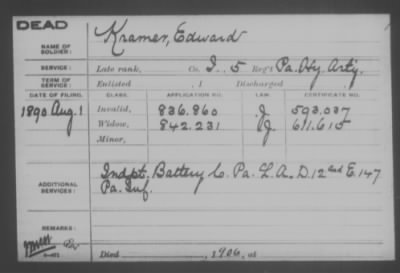 DEAD
NAME OF SOLDIER: Kramer, Edward
SERVICE: Late rank, Co. I., 5 Reg't Pa. Hy. Arty.
TERM OF SERVICE: Enlisted , 1 Discharged , 1
DATE OF FILING. CLASS. APPLICATION NO. LAW. CERTIFICATE NO.
1890 Aug. 1 Invalid, 836.860 J 593.037
Widow, 842.231 J 611.615
Minor,
ADDITIONAL SERVICES: Indpt. Battery C. Pa. L. A. D. 12 and E. 147
Pa. Inf.
REMARKS:
Died , 1906, at